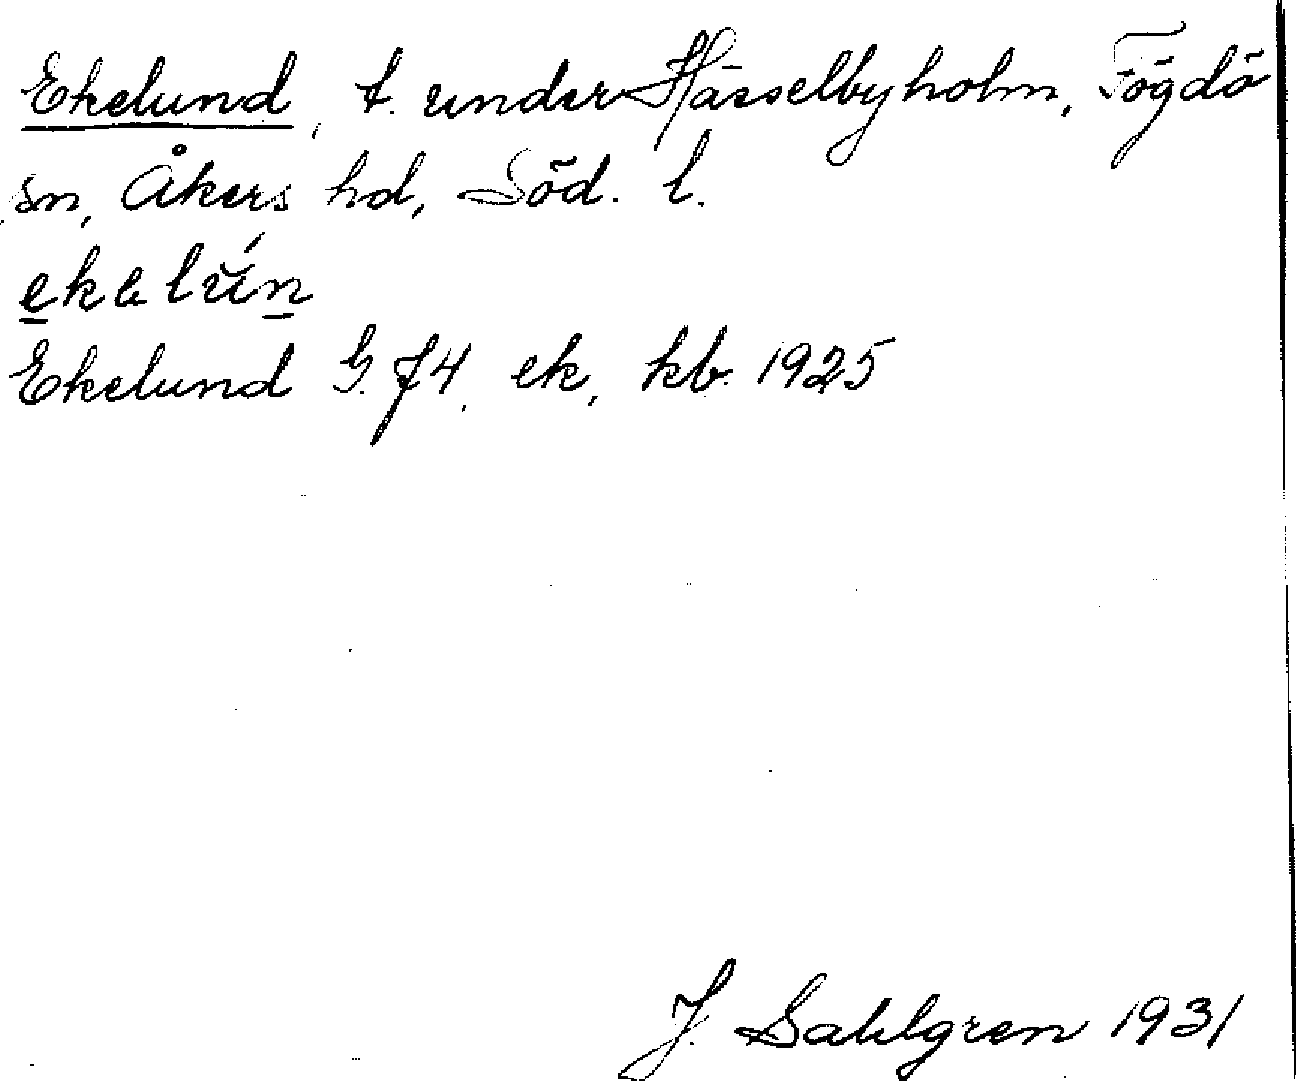 Ekelund, t. under Hässelbyholm, Fogdö
sn, Åkers hd, Söd. l.
Ekelund G. J4, ek, kb 1925
J. Sahlgren 1931